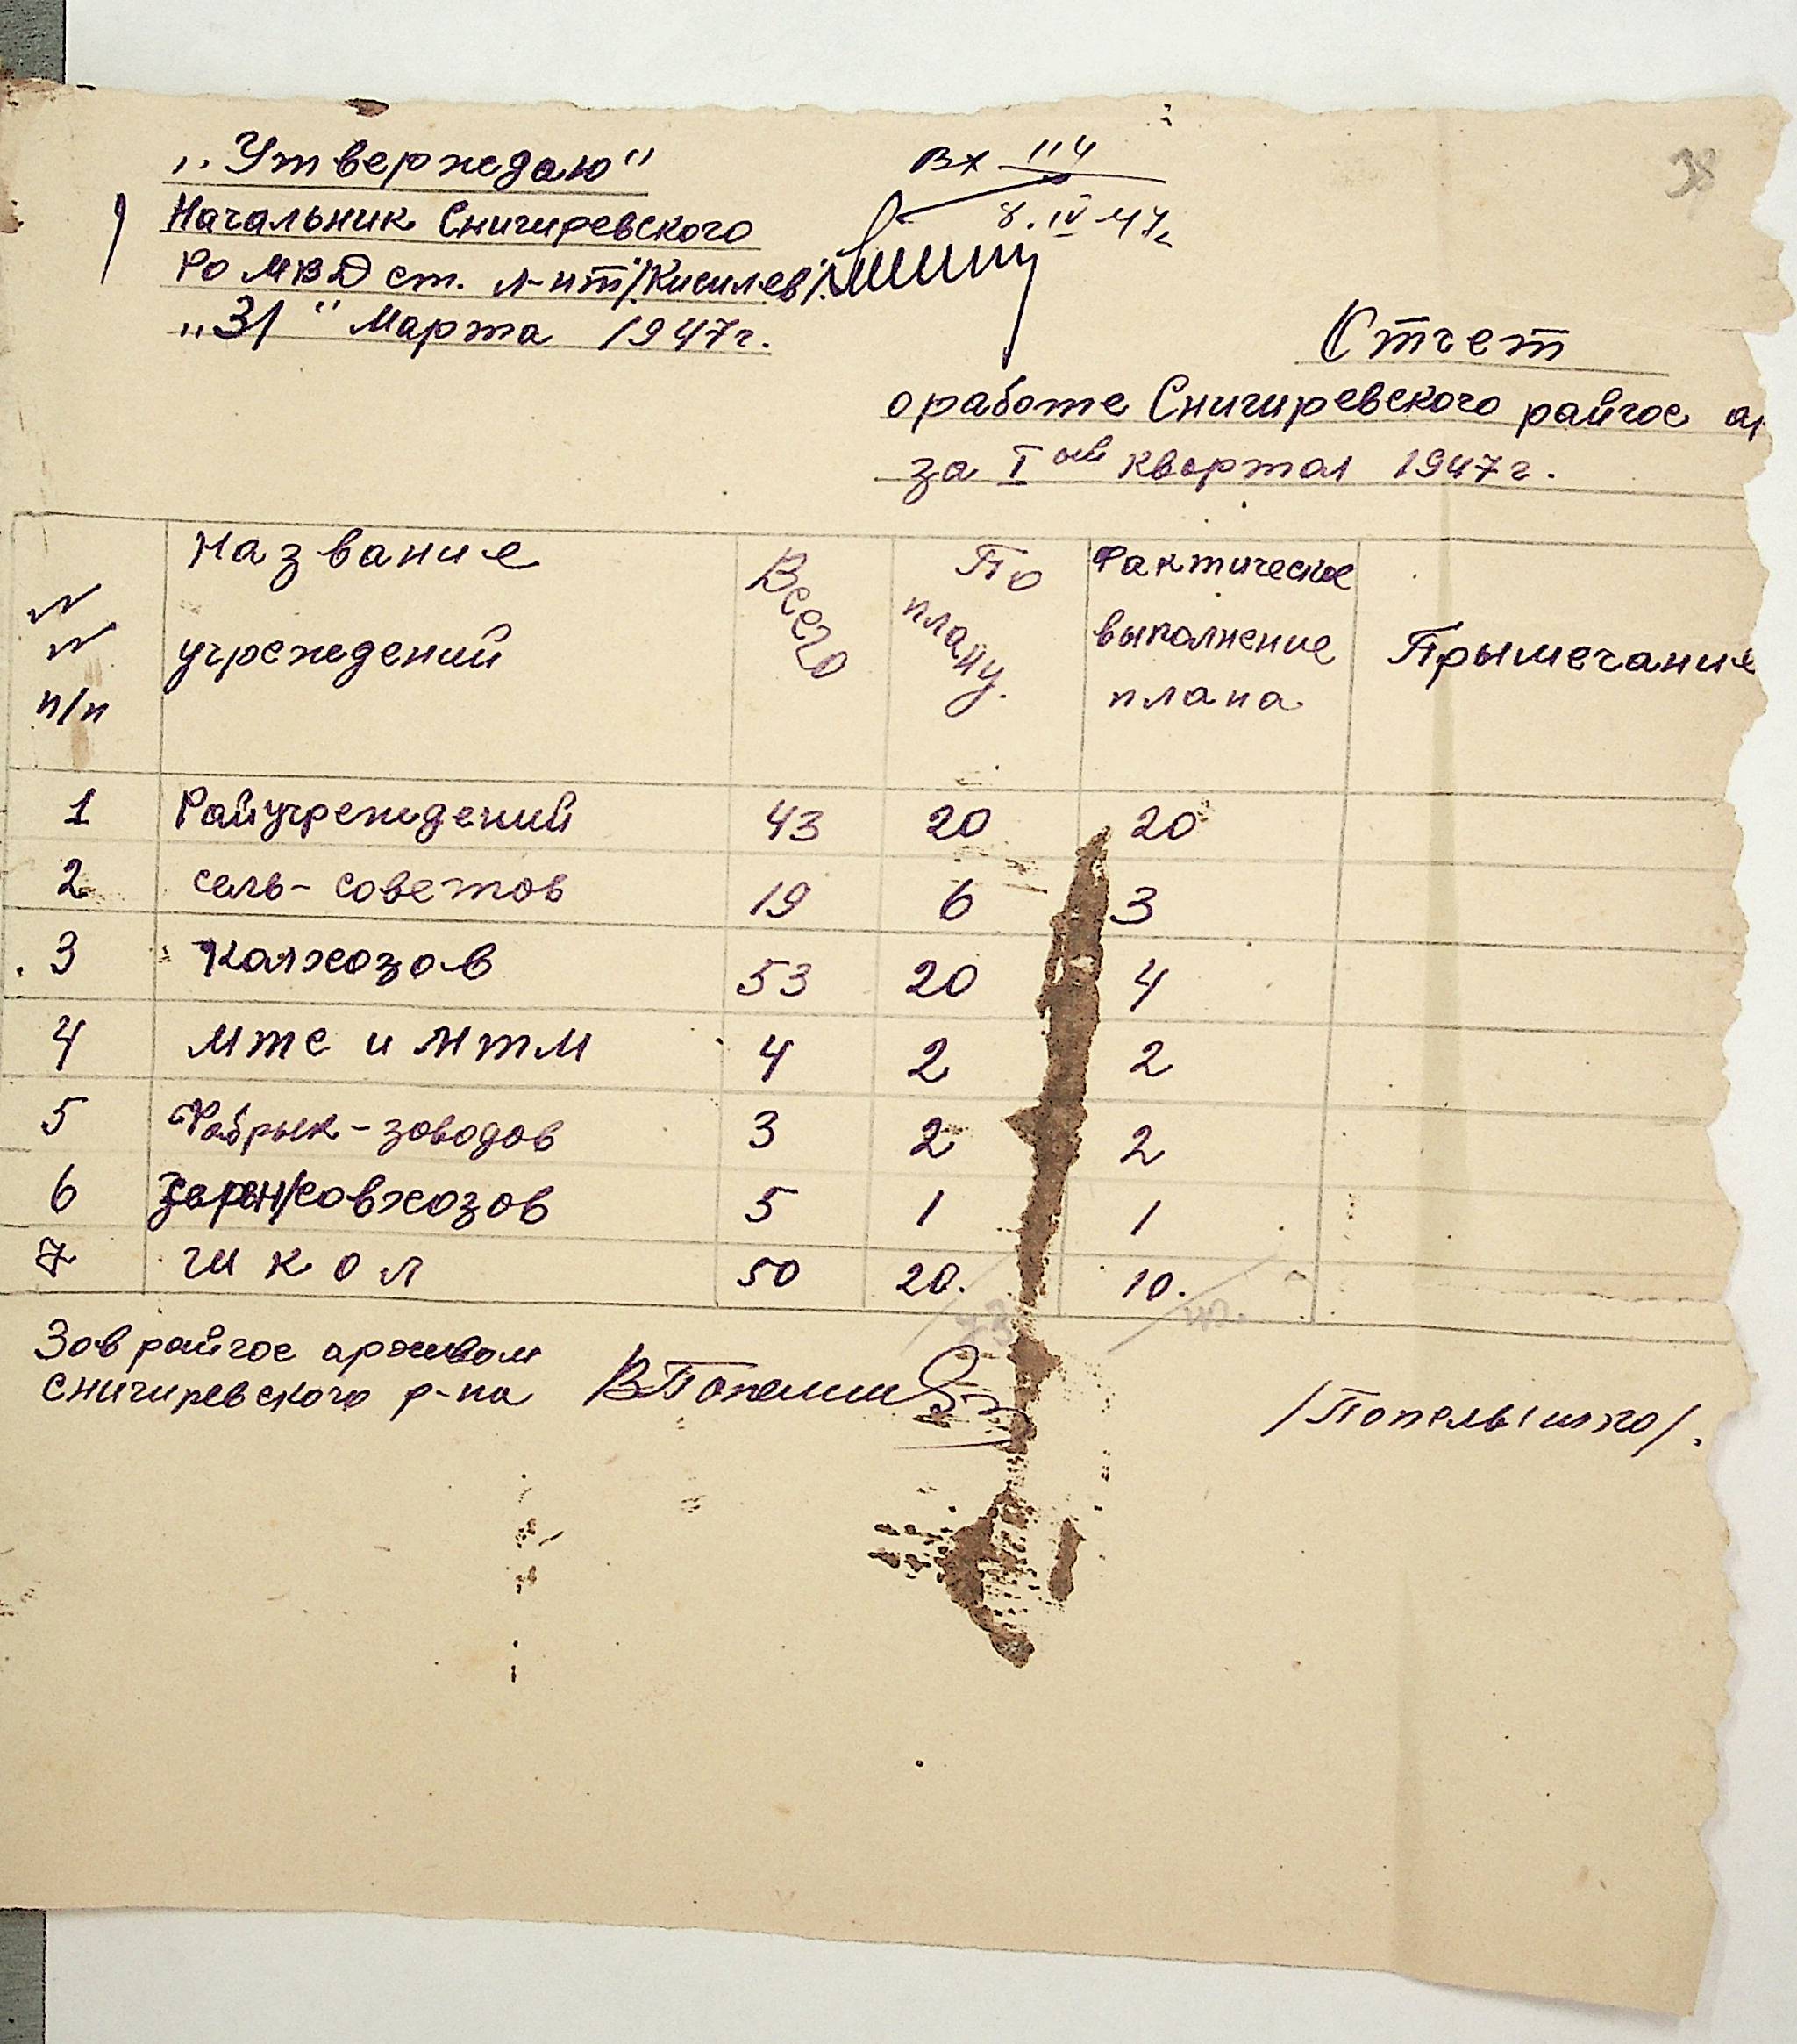 „Утверждаю"
Начальник Снигиревского
РО МВД ст. л-нт /Кисилев/
„31" Марта 1947г.
Вх 114
8.IV-47г
38
Отчет
о работе Снигиревского райгос ар
за Iый квартал 1947г.
№ № п/п Название учреждений Всего По плану. Фактическое выполнение плана Прымечание
1 Райучреждений 43 20 20
2 сель-советов 19 6 3
3 Колхозов 53 20 4
4 мтс и мтм 4 2 2
5 Фабрык-заводов 3 2 2
6 зерн/совхозов 5 1 1
7 школ 50 20. 10.
73
Зав райгос архивом
Снигиревского р-на
/Попельышко/.